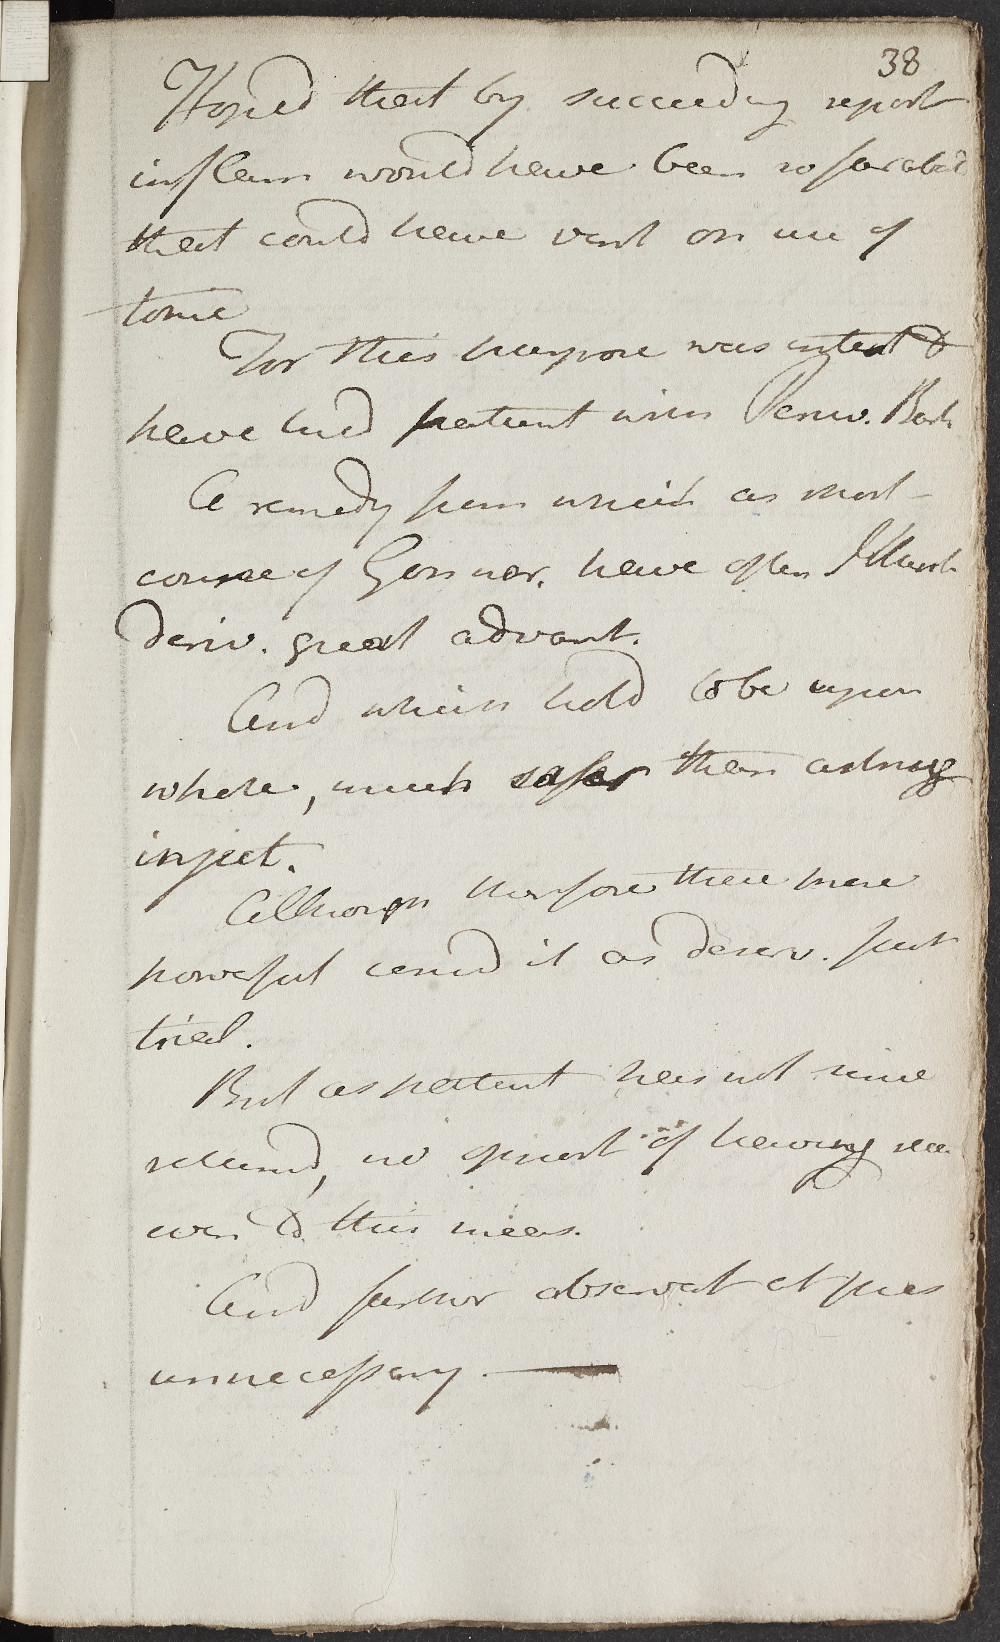 38
Hoped that by succeeding report
inflam would have been so far abat'd
that could have vent on use of
tonic
For this purpose was intent to
have tried patient with Peruv. Bark
A remedy from which at
course of Gonnor. have often
deriv. great advant.
And which hold to be upon
whole, much safer than astring
inject.
Although therefore there more
powerful cons'd it as deserv. first
trial.
But as patient has not since
returned, no opport of having rec
to this
And further observat at pres
unnecessary.